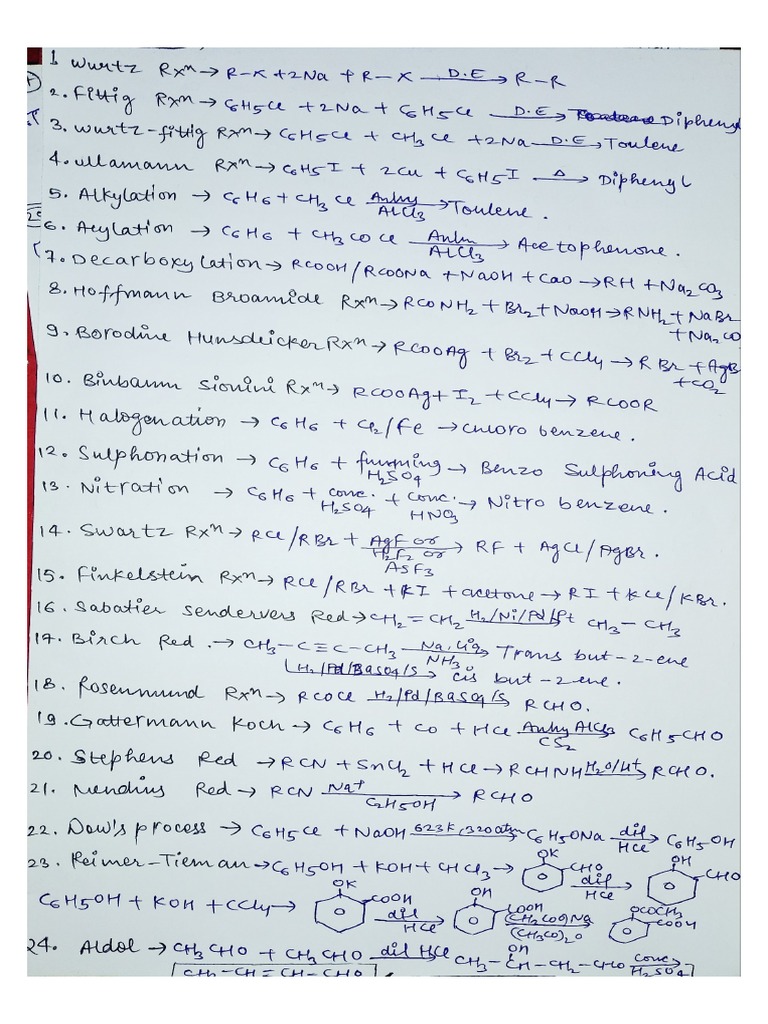 1 Wurtz Rxⁿ → R-X + 2Na + R-X D.E → R-R
2. Fittig Rxⁿ → C6H5Cl + 2Na + C6H5Cl D.E → Diphenyl
3. Wurtz-fittig Rxⁿ → C6H5Cl + CH3Cl + 2Na D.E → Toulene
4. Ullamann Rxⁿ → C6H5I + 2Cu + C6H5I Δ → Diphenyl
5. Alkylation → C6H6 + CH3Cl Anhy AlCl3 → Toulene.
6. Acylation → C6H6 + CH3COCl Anhy AlCl3 → Acetophenone.
7. Decarboxylation → RCOOH/RCOONa + NaOH + CaO → RH + Na2CO3
8. Hoffmann Broamide Rxⁿ → RCONH2 + Br2 + NaOH → RNH2 + NaBr
+ Na2CO
9. Borodine Hunsdeicker Rxⁿ → RCOOAg + Br2 + CCl4 → RBr + AgB
+ CO2
10. Binbaum Sionini Rxⁿ → RCOOAg + I2 + CCl4 → RCOOR
11. Halogenation → C6H6 + Cl2/Fe → chloro benzene.
12. Sulphonation → C6H6 + fumming H2SO4 → Benzo Sulphoning Acid
13. Nitration → C6H6 + conc. H2SO4 + conc. HNO3 → Nitro benzene.
14. Swartz Rxⁿ → RCl/RBr + AgF or H2F2 or ASF3 → RF + AgCl/AgBr.
15. Finkelstein Rxⁿ → RCl/RBr + KI + acetone → RI + KCl/KBr.
16. Sabatier sendervers Red → CH2=CH2 H2/Ni/Pd/Pt CH3-CH3
17. Birch Red. → CH3-C≡C-CH3 Na, Liq NH3 → Trans but-2-ene
H2/Pd/BaSO4/S → cis but-2-ene.
18. Rosenmund Rxⁿ → RCOCl H2/Pd/BaSO4/S → RCHO.
19. Gattermann Koch → C6H6 + CO + HCl Anhy AlCl3 CS2 → C6H5CHO
20. Stephens Red → RCN + SnCl2 + HCl → RCHNH H2O/H+ → RCHO.
21. Mendius Red → RCN Na+ C2H5OH → RCHO
22. Dow's process → C6H5Cl + NaOH 623K, 320atm → C6H5ONa dil HCl → C6H5OH
23. Reimer-Tieman → C6H5OH + KOH + CHCl3 → OK CHO dil HCl → OH CHO
C6H5OH + KOH + CCl4 → OK COOH dil HCl → OH COOH (CH3COO)Na (CH3CO)2O → OCOCH3 COOH
24. Aldol → CH3CHO + CH3CHO dil HCl → CH3-CH-CH2-CHO OH conc H2SO4
CH3-CH=CH-CHO